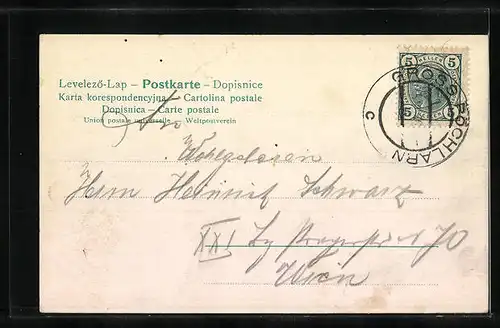 Levelező-Lap – Postkarte – Dopisnice
Karta korespondencyjna – Cartolina postale
Dopisnica – Carte postale
Union postale universelle – Weltpostverein
5 5
HELLER
GROSS PÖCHLARN
C
Wohlgeboren
Herrn Heinrich Schwarz
XXI 70
Wien